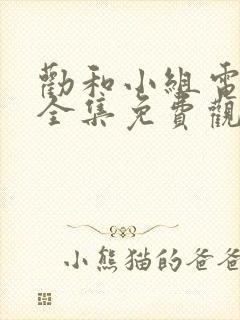 勸和小組電
全集免費觀
小熊猫的爸爸